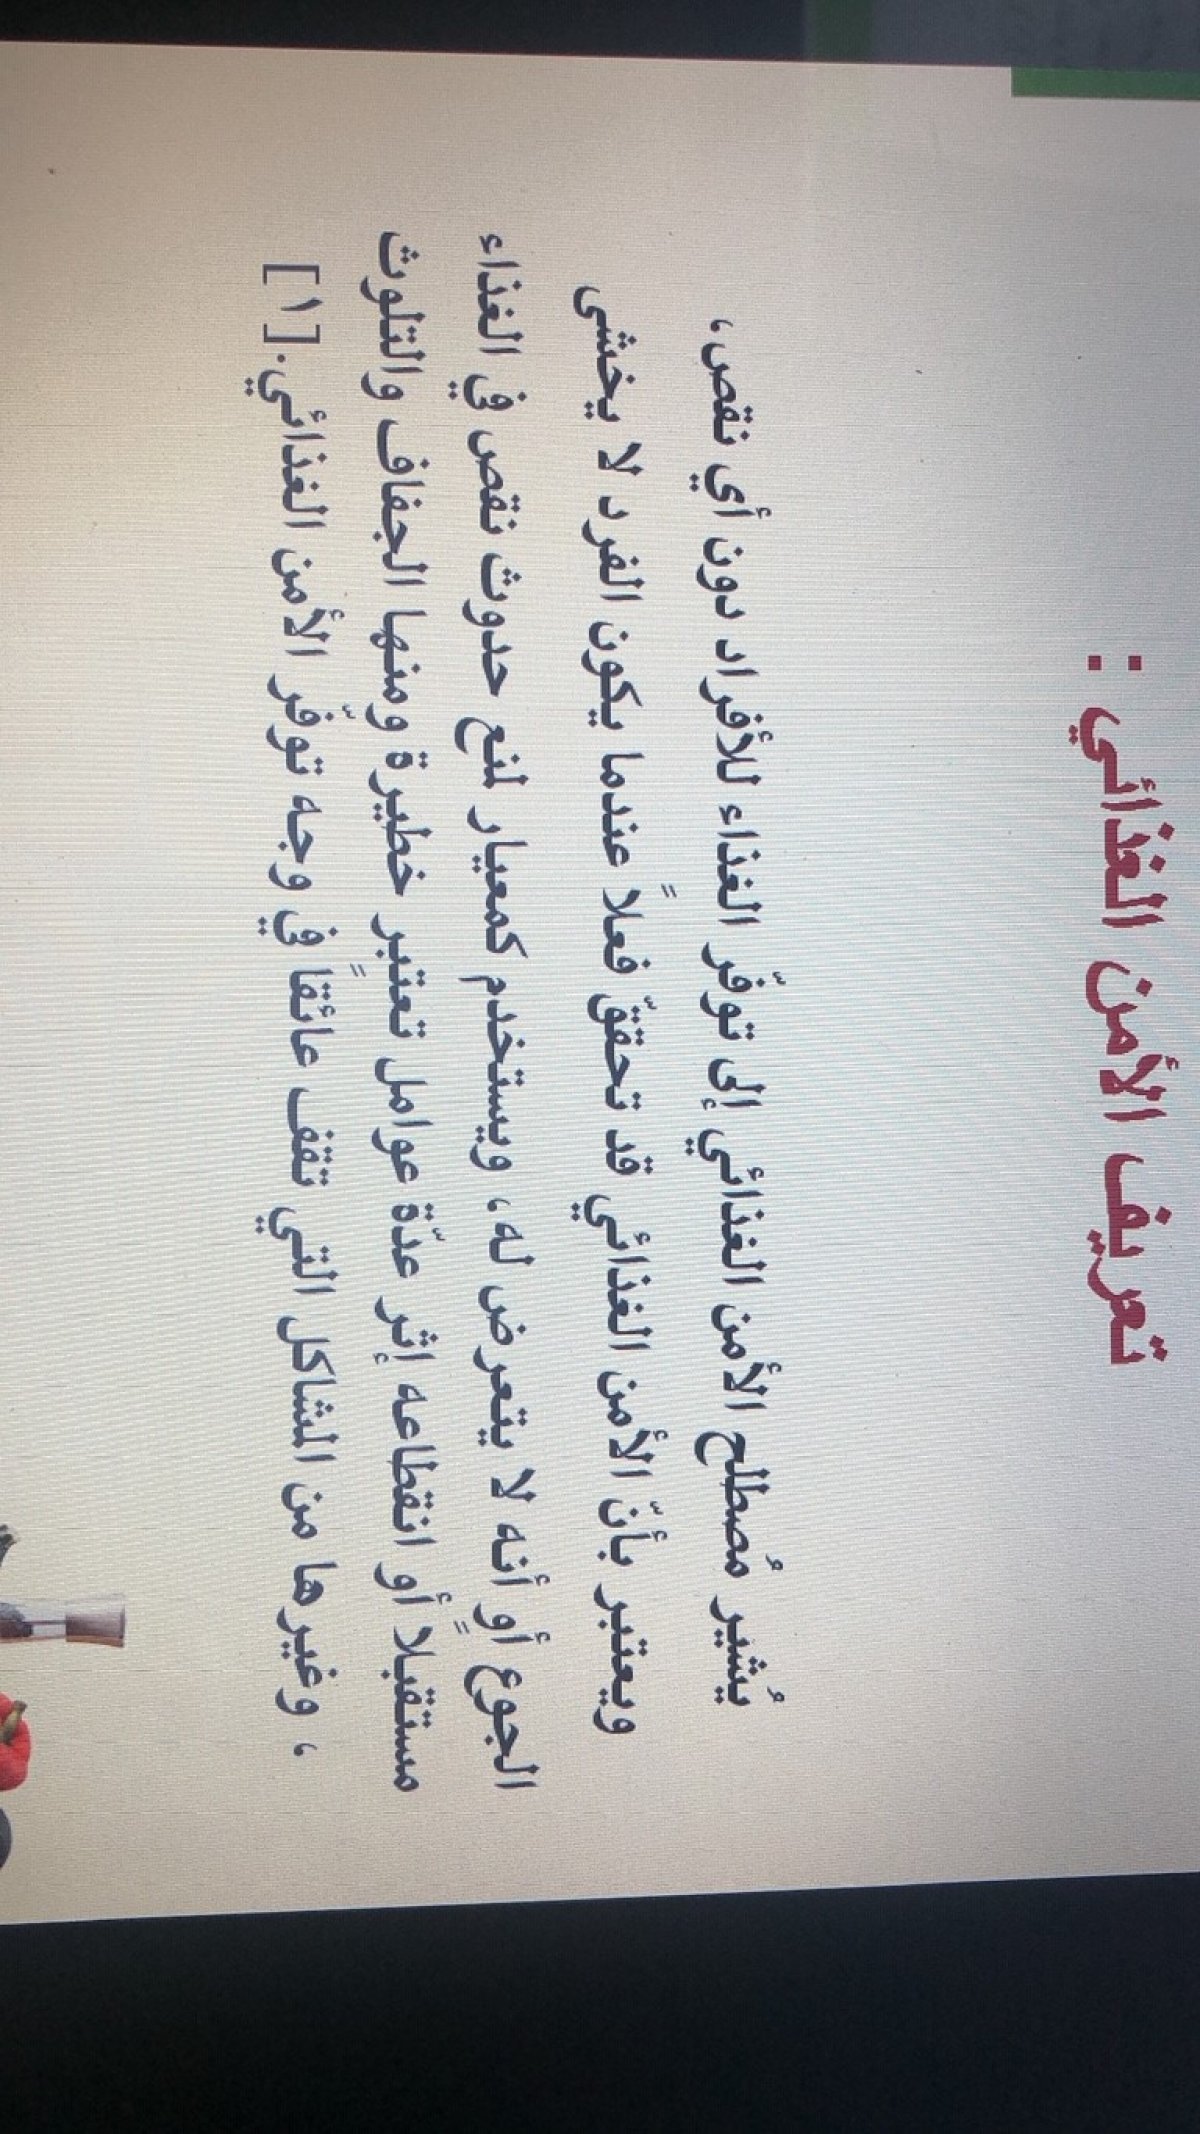 تعريف الأمن الغذائي :
يُشير مُصطلح الأمن الغذائي إلى توفّر الغذاء للأفراد دون أي نقص،
ويعتبر بأنّ الأمن الغذائي قد تحققّ فعلاً عندما يكون الفرد لا يخشى
الجوع أو أنه لا يتعرض له، ويستخدم كمعيار لمنع حدوث نقص في الغذاء
مستقبلاً أو انقطاعه إثر عدّة عوامل تعتبر خطيرة ومنها الجفاف والتلوث
، وغيرها من المشاكل التي تقف عائقاً في وجه توفّر الأمن الغذائي.[١]